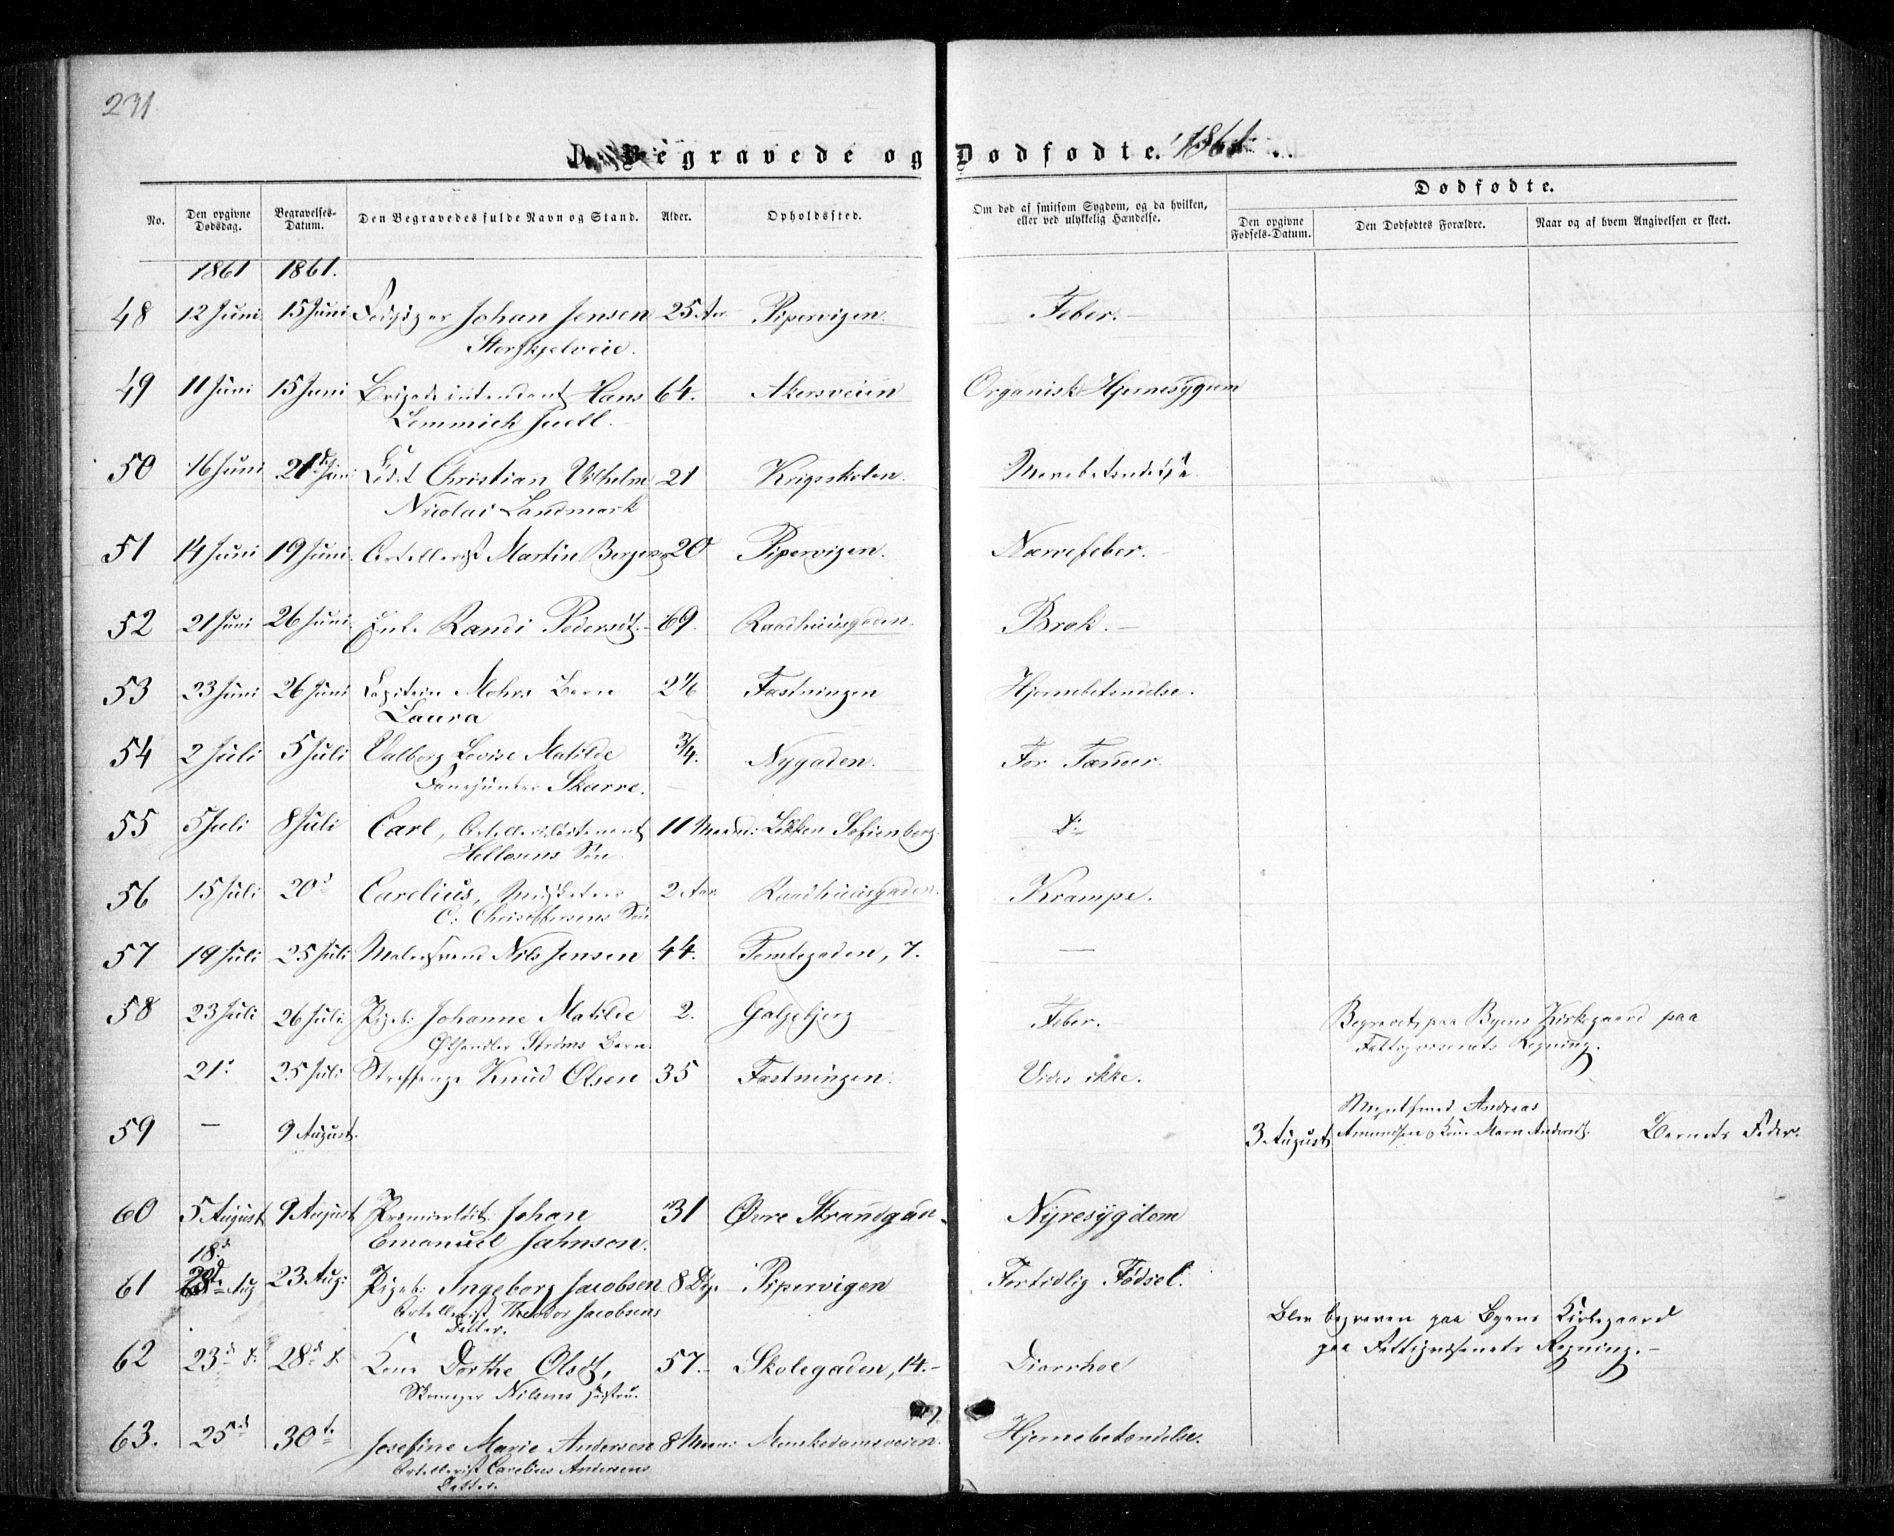 231
D. Begravede og Dødfødte. 1861.
Dødfødte.
No. Den opgivne Dødsdag. Begravelses-Datum. Den Begravedes fulde Navn og Stand. Alder. Opholdssted. Om død af smitsom Sygdom, og da hvilken, eller ved ulykkelig Hændelse. Den opgivne Fødsels-Datum. Den Dødfødtes Forældre. Naar og af hvem Angivelsen er skeet.
1861 1861.
48 12 Juni 15 Juni Johan Jensen 25 Aar Pipervigen Feber.
49 11 Juni 15 Juni Brigadeintendant Hans 64. Akersveien Organisk Hjernesygdom
Lemmich Juell.
50 16 Juni 21 Juni Christian Vilhelm 21 Krigsskolen.
Nicolai Landmark
51 14 Juni 19 Juni Artellerist Martin Bergersen 20 Pipervigen. Nervefeber.
52 21 Juni 26 Juni Enke Randi Pedersdt. 69. Raadhuusgaden. Brok.
53 23 Juni 26 Juni Capitein Mohrs Barn 2 1/6 Fæstningen Hjernebetendelse.
Laura
54 2 Juli 5 Juli Valborg Lovise Matilde 3/4. Nygaden. For Tænner.
Skarre.
55 5 Juli 8 Juli Carl, 11 Maan: Løkken Sofienberg. Do
Søn
56 15 Juli 20 d Carelius, Musketeer 2 Aar. Raadhuusgaden. Krampe.
C. Christoffersens Søn
57 19 Juli 25 Juli Malersvend Nils Jensen 44. Tomtegaden, 7. —
58 23 Juli 26 Juli Pigeb: Johanne Matilde 2. Galgebjerg Feber. Begravet paa Byens Kirkegaard paa
Ølhandler Strøms Barn. Fattigvæsenets Regning.
21. 25 Juli Straffange Knud Olsen 35 Fæstningen. Vides ikke.
Andreas
59 — 9 August. 3 August Amundsen & Kone Maren Andersdt. Barnets Fader.
60 5 August 9 August Premierløit: Johan 31 Øvre Strandgad. Nyresygdom
Emanuel Jahnson.
18.
61 Aug 23 Aug: Pigeb: Ingeborg Jacobsen 8 Dage Pipervigen Fortidlig Fødsel.
Artellerist Theodor Jacobsens
Datter.
Blev begraven paa Byens Kirkegaard
62 23 d. 28 d. Kone Dorthe Olsdt, 57. Skolegaden, 14. Diarrhoe paa Fattigvæsenets Regning.
Nilsens Hustru.
63. 25 d 30 te Josefine Marie Andersen 8 Maan: Munkedamsveien. Hjernebetendelse.
Artellerist Carelius Andersens
Datter.